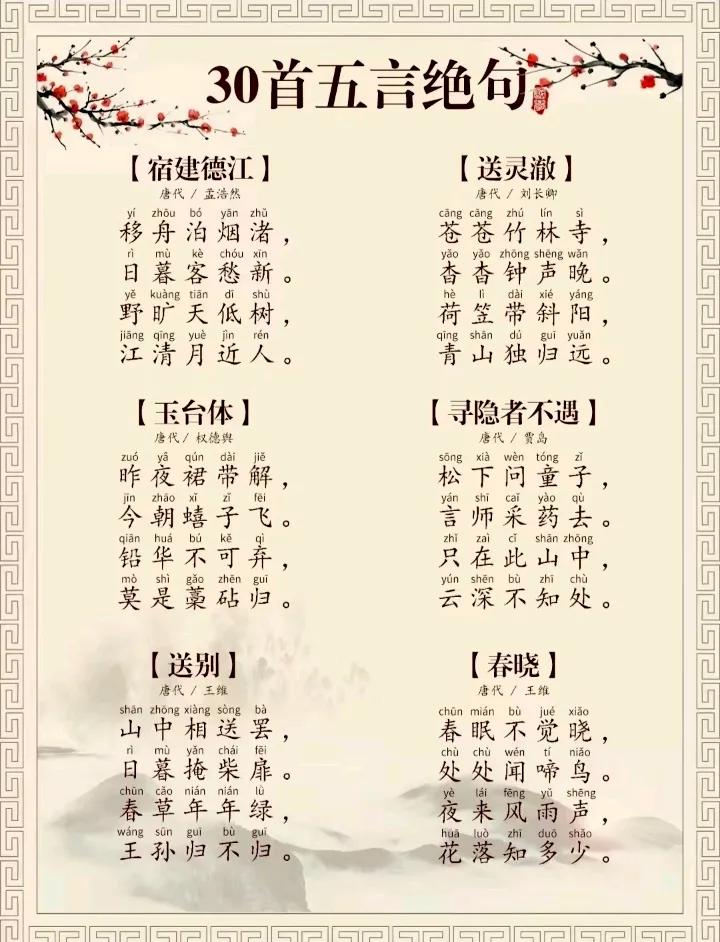 30首五言绝句
【宿建德江】
唐代 / 孟浩然
yí zhōu bó yān zhǔ
移舟泊烟渚，
rì mù kè chóu xīn
日暮客愁新。
yě kuàng tiān dī shù
野旷天低树，
jiāng qīng yuè jìn rén
江清月近人。
【送灵澈】
唐代 / 刘长卿
cāng cāng zhú lín sì
苍苍竹林寺，
yǎo yǎo zhōng shēng wǎn
杳杳钟声晚。
hè lì dài xié yáng
荷笠带斜阳，
qīng shān dú guī yuǎn
青山独归远。
【玉台体】
唐代 / 权德舆
zuó yè qún dài jiě
昨夜裙带解，
jīn zhāo xǐ zǐ fēi
今朝蟢子飞。
qiān huá bù kě qì
铅华不可弃，
mò shì gǎo zhēn guī
莫是藁砧归。
【寻隐者不遇】
唐代 / 贾岛
sōng xià wèn tóng zǐ
松下问童子，
yán shī cǎi yào qù
言师采药去。
zhǐ zài cǐ shān zhōng
只在此山中，
yún shēn bù zhī chù
云深不知处。
【送别】
唐代 / 王维
shān zhōng xiàng sòng bà
山中相送罢，
rì mù yǎn chái fēi
日暮掩柴扉。
chūn cǎo nián nián lǜ
春草年年绿，
wáng sūn guī bù guī
王孙归不归。
【春晓】
唐代 / 王维
chūn mián bù jué xiǎo
春眠不觉晓，
chù chù wén tí niǎo
处处闻啼鸟。
yè lái fēng yǔ shēng
夜来风雨声，
huā luò zhī duō shǎo
花落知多少。